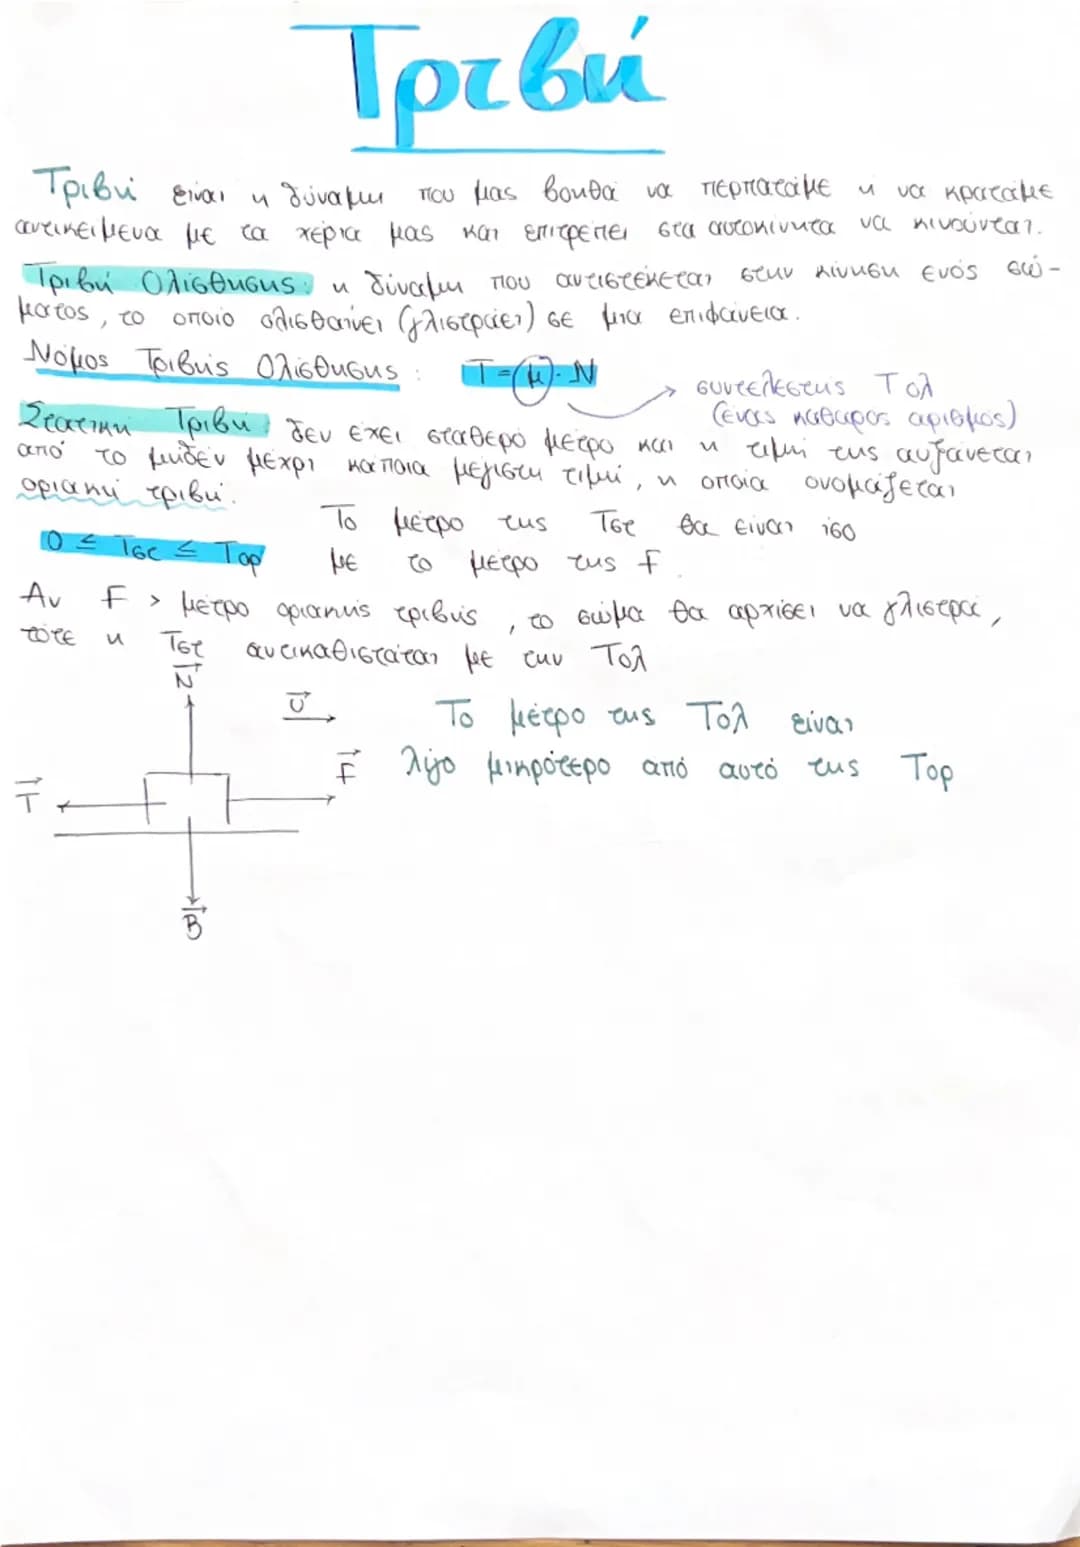 Τριβή
Τριβή είναι η δύναμη που μας βοηθά να περπατάμε ή να κρατάμε
αντικείμενα με τα χέρια μας και επιτρέπει στα αυτοκίνητα να κινούνται.
Τριβή Ολίσθησης: η δύναμη που αντιστέκεται στην κίνηση ενός σώ-
ματος, το οποίο ολισθαίνει (γλιστράει) σε μια επιφάνεια.
Νόμος Τριβής Ολίσθησης: T = μ · N
συντελεστής Τολ
(ένας καθαρός αριθμός)
Στατική Τριβή: δεν έχει σταθερό μέτρο και η τιμή της αυξάνεται
από το μηδέν μέχρι κάποια μέγιστη τιμή, η οποία ονομάζεται
οριακή τριβή.
Το μέτρο της Τστ θα είναι ίσο
0 ≤ Τστ ≤ Τορ
με το μέτρο της F
Αν F > μέτρο οριακής τριβής, το σώμα θα αρχίσει να γλιστρά,
τότε η Τστ αντικαθίσταται με την Τολ
N
υ
Το μέτρο της Τολ είναι
F
λίγο μικρότερο από αυτό της Τορ
T
B